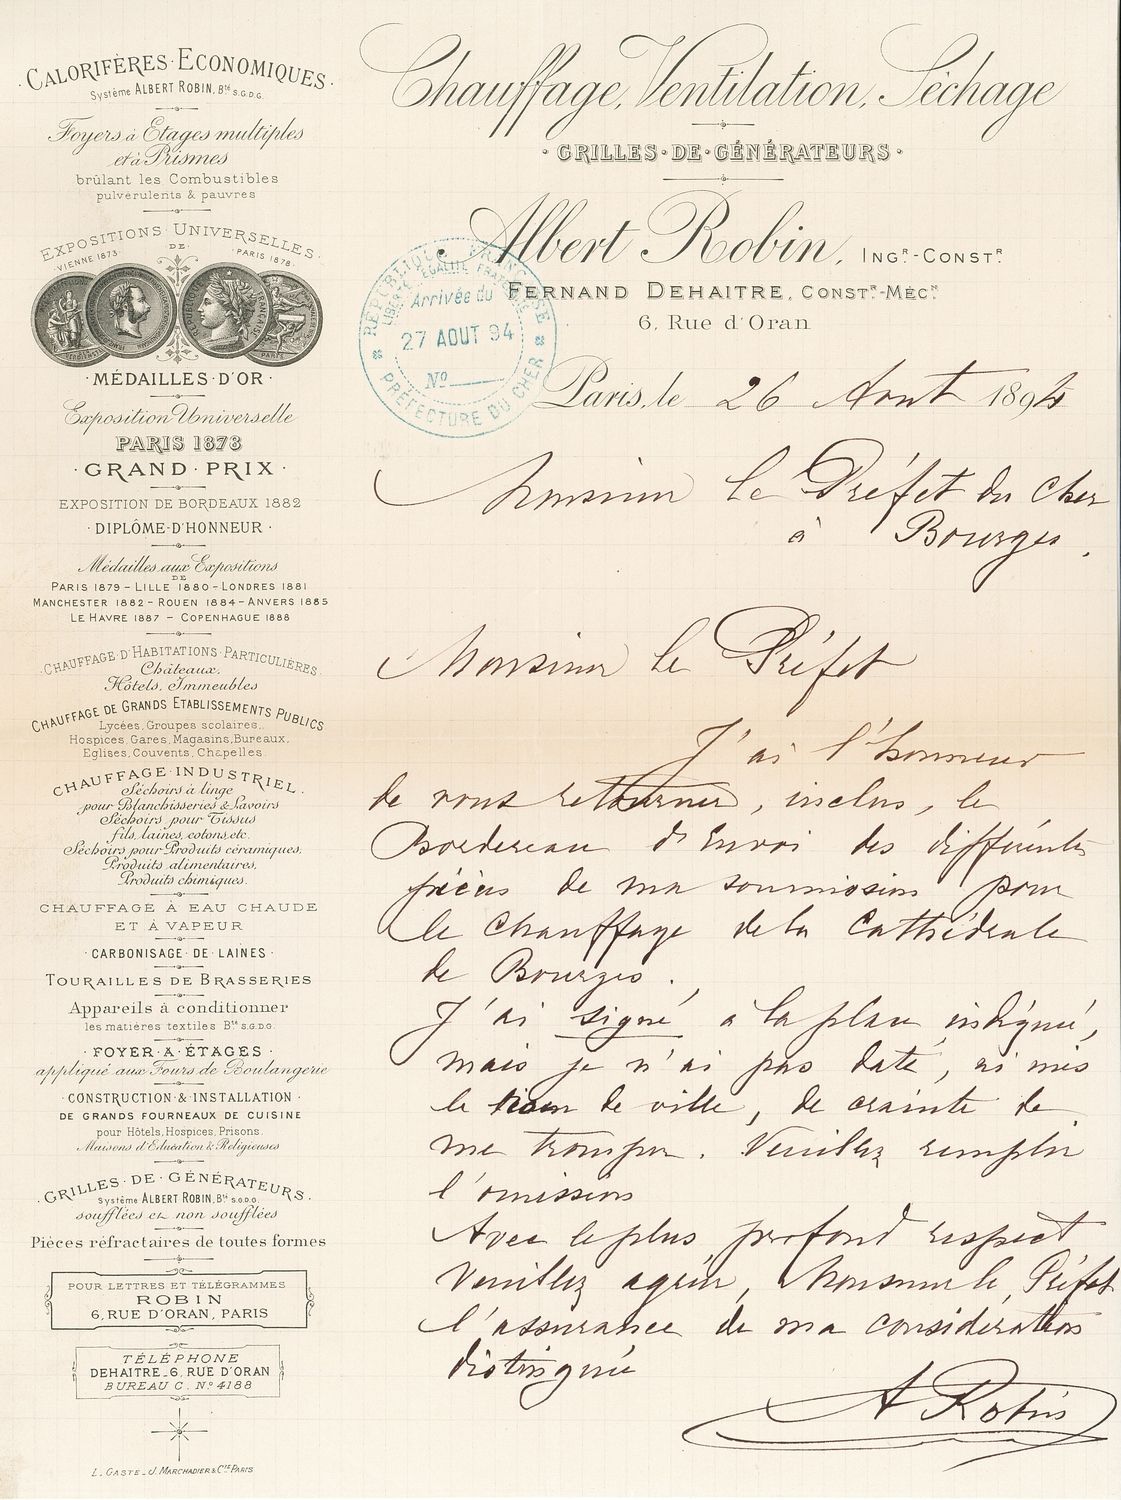 CALORIFÈRES·ECONOMIQUES
Système ALBERT ROBIN, Bté S.G.D.G.
Foyers à Etages multiples
et à Prismes
brûlant les Combustibles
pulvérulents & pauvres
EXPOSITIONS UNIVERSELLES
DE
VIENNE 1873 PARIS 1878
·MÉDAILLES·D'OR·
Exposition Universelle
PARIS 1878
·GRAND·PRIX·
EXPOSITION DE BORDEAUX 1882
·DIPLÔME·D'HONNEUR·
Médailles aux Expositions
DE
PARIS 1879 – LILLE 1880 – LONDRES 1881
MANCHESTER 1882 – ROUEN 1884 – ANVERS 1885
LE HAVRE 1887 – COPENHAGUE 1888
·CHAUFFAGE·D'HABITATIONS·PARTICULIÈRES·
Châteaux,
Hôtels, Immeubles
CHAUFFAGE DE GRANDS ETABLISSEMENTS PUBLICS
Lycées, Groupes scolaires,
Hospices, Gares, Magasins, Bureaux,
Eglises, Couvents, Chapelles
CHAUFFAGE·INDUSTRIEL.
Séchoirs à linge
pour Blanchisseries & Lavoirs
Séchoirs pour Tissus
fils, laines, cotons, etc.
Séchoirs pour Produits céramiques,
Produits alimentaires,
Produits chimiques.
CHAUFFAGE À EAU CHAUDE
ET À VAPEUR
·CARBONISAGE·DE·LAINES·
TOURAILLES DE BRASSERIES
Appareils à conditionner
les matières textiles Bté S.G.D.G.
·FOYER·À·ÉTAGES·
appliqué aux Fours de Boulangerie
·CONSTRUCTION·&·INSTALLATION·
DE GRANDS FOURNEAUX DE CUISINE
pour Hôtels, Hospices, Prisons.
Maisons d'Education & Religieuses
·GRILLES·DE·GÉNÉRATEURS.
Système ALBERT ROBIN, Bté S.G.D.G.
soufflées et non soufflées
Pièces réfractaires de toutes formes
POUR LETTRES ET TÉLÉGRAMMES
ROBIN
6, RUE D'ORAN, PARIS
TÉLÉPHONE
DEHAITRE_6, RUE D'ORAN
BUREAU C. Nº 4188
L. GASTE_J. MARCHADIER & Cie PARIS
Chauffage, Ventilation, Séchage
·GRILLES·DE·GÉNÉRATEURS·
Albert Robin, INGR.-CONSTR.
FERNAND DEHAITRE, CONSTR.-MÉCN.
6, Rue d'Oran
RÉPUBLIQUE FRANÇAISE
LIBERTÉ EGALITÉ FRATERNITÉ
Arrivée du
27 AOUT 94
Nº
PRÉFECTURE DU CHER
Paris, le 26 Aout 1894
Monsieur le Préfet du Cher
à Bourges.
Monsieur le Préfet
J'ai l'honneur
de vous retourner, inclus, le
Bordereau d'Envoi des différentes
pièces de ma soumission pour
le Chauffage de la Cathédrale
de Bourges.
J'ai signé à la place indiquée,
mais je n'ai pas daté, ni mis
le nom de ville, de crainte de
me tromper. Veuillez remplir
l'omission
Avec le plus profond respect
Veuillez agréer, Monsieur le Préfet
l'assurance de ma considération
distinguée
A Robin